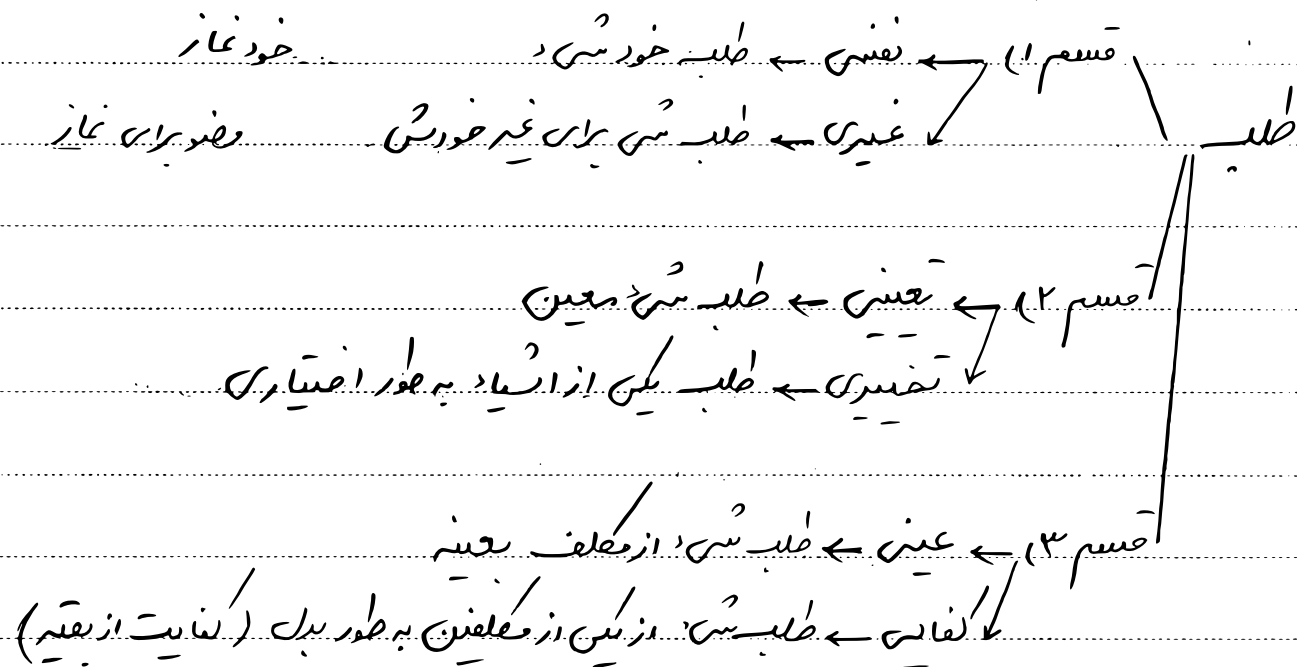 قسم ۱) ← نفسی ← طلب خود شیء خود نماز
غیری ← طلب شی برای غیر خودش وضو برای نماز
طلب
قسم ۲) ← تعیینی ← طلب شیء معین
تخییری ← طلب یکی از اشیاء به طور اختیاری
قسم ۳) ← عینی ← طلب شیء از مکلف بعینه
کفایی ← طلب شیء از یکی از مکلفین به طور بدل (کفایت از بقیه)